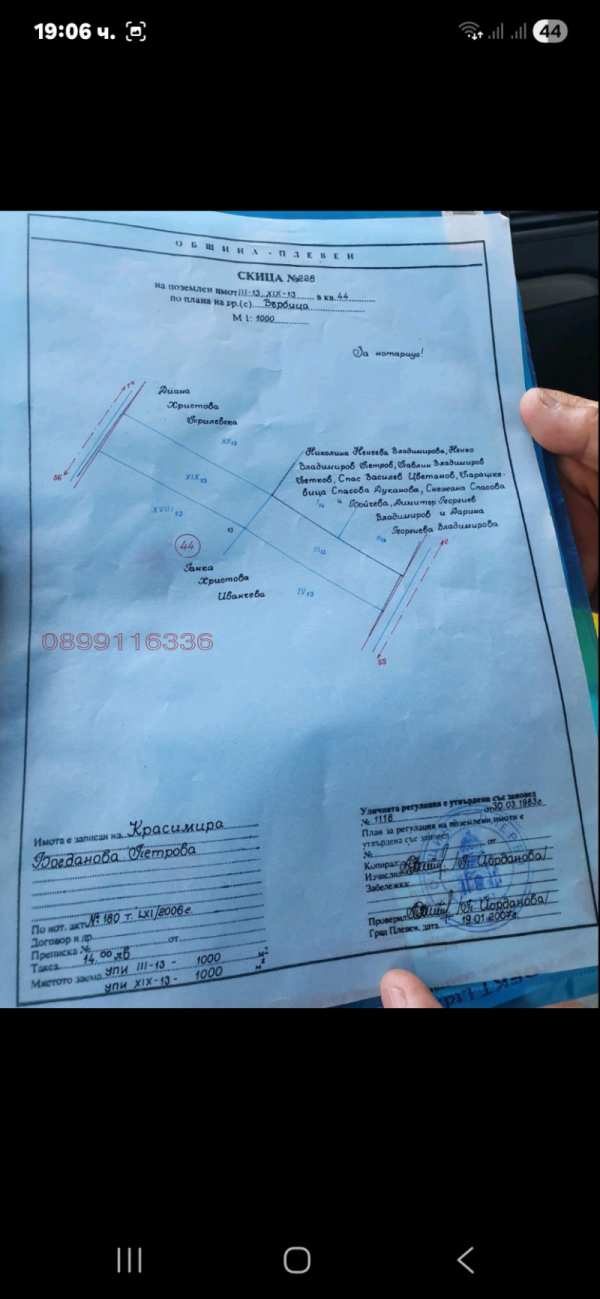 19:06 ч.
44
ОБЩИНА - ПЛЕВЕН
СКИЦА №228
на поземлен имот III-13, XIX-13 в кв. 44
по плана на гр.(с). Върбица
М 1: 1000
За нотариус!
Диана
Христова
XX13
XIX13
XVIII13
44
Ганка
Христова
Иванчева
IV13
Николина Ненчева Владимирова, Ненко
Владимиров Петров, Павлин Владимиров
Петков, Спас Василев Цветанов, Параскевица Спасова Дуканова, Снежана Спасова
Бойчева, Димитър Георгиев
Владимиров и Дарина
Георгиева Владимирова
0899116336
Имота е записан на Красимира
Богданова Петрова
По нот. акт № 180 т. LXI/2006г.
Договор и др.
Преписка № от
Такса 14,00 лв
Мястото заема УПИ III-13 - 1000 м2
УПИ XIX-13 - 1000 м2
Уличната регулация е утвърдена със заповед
№ 1116 от 30.03.1983г.
План за регулация на поземлени имоти е
утвърдена със заповед
№ от
Копирал /П. Йорданова/
Изчислил
Забележки:
Проверил /П. Йорданова/
Град Плевен, дата 19.01.2007г.